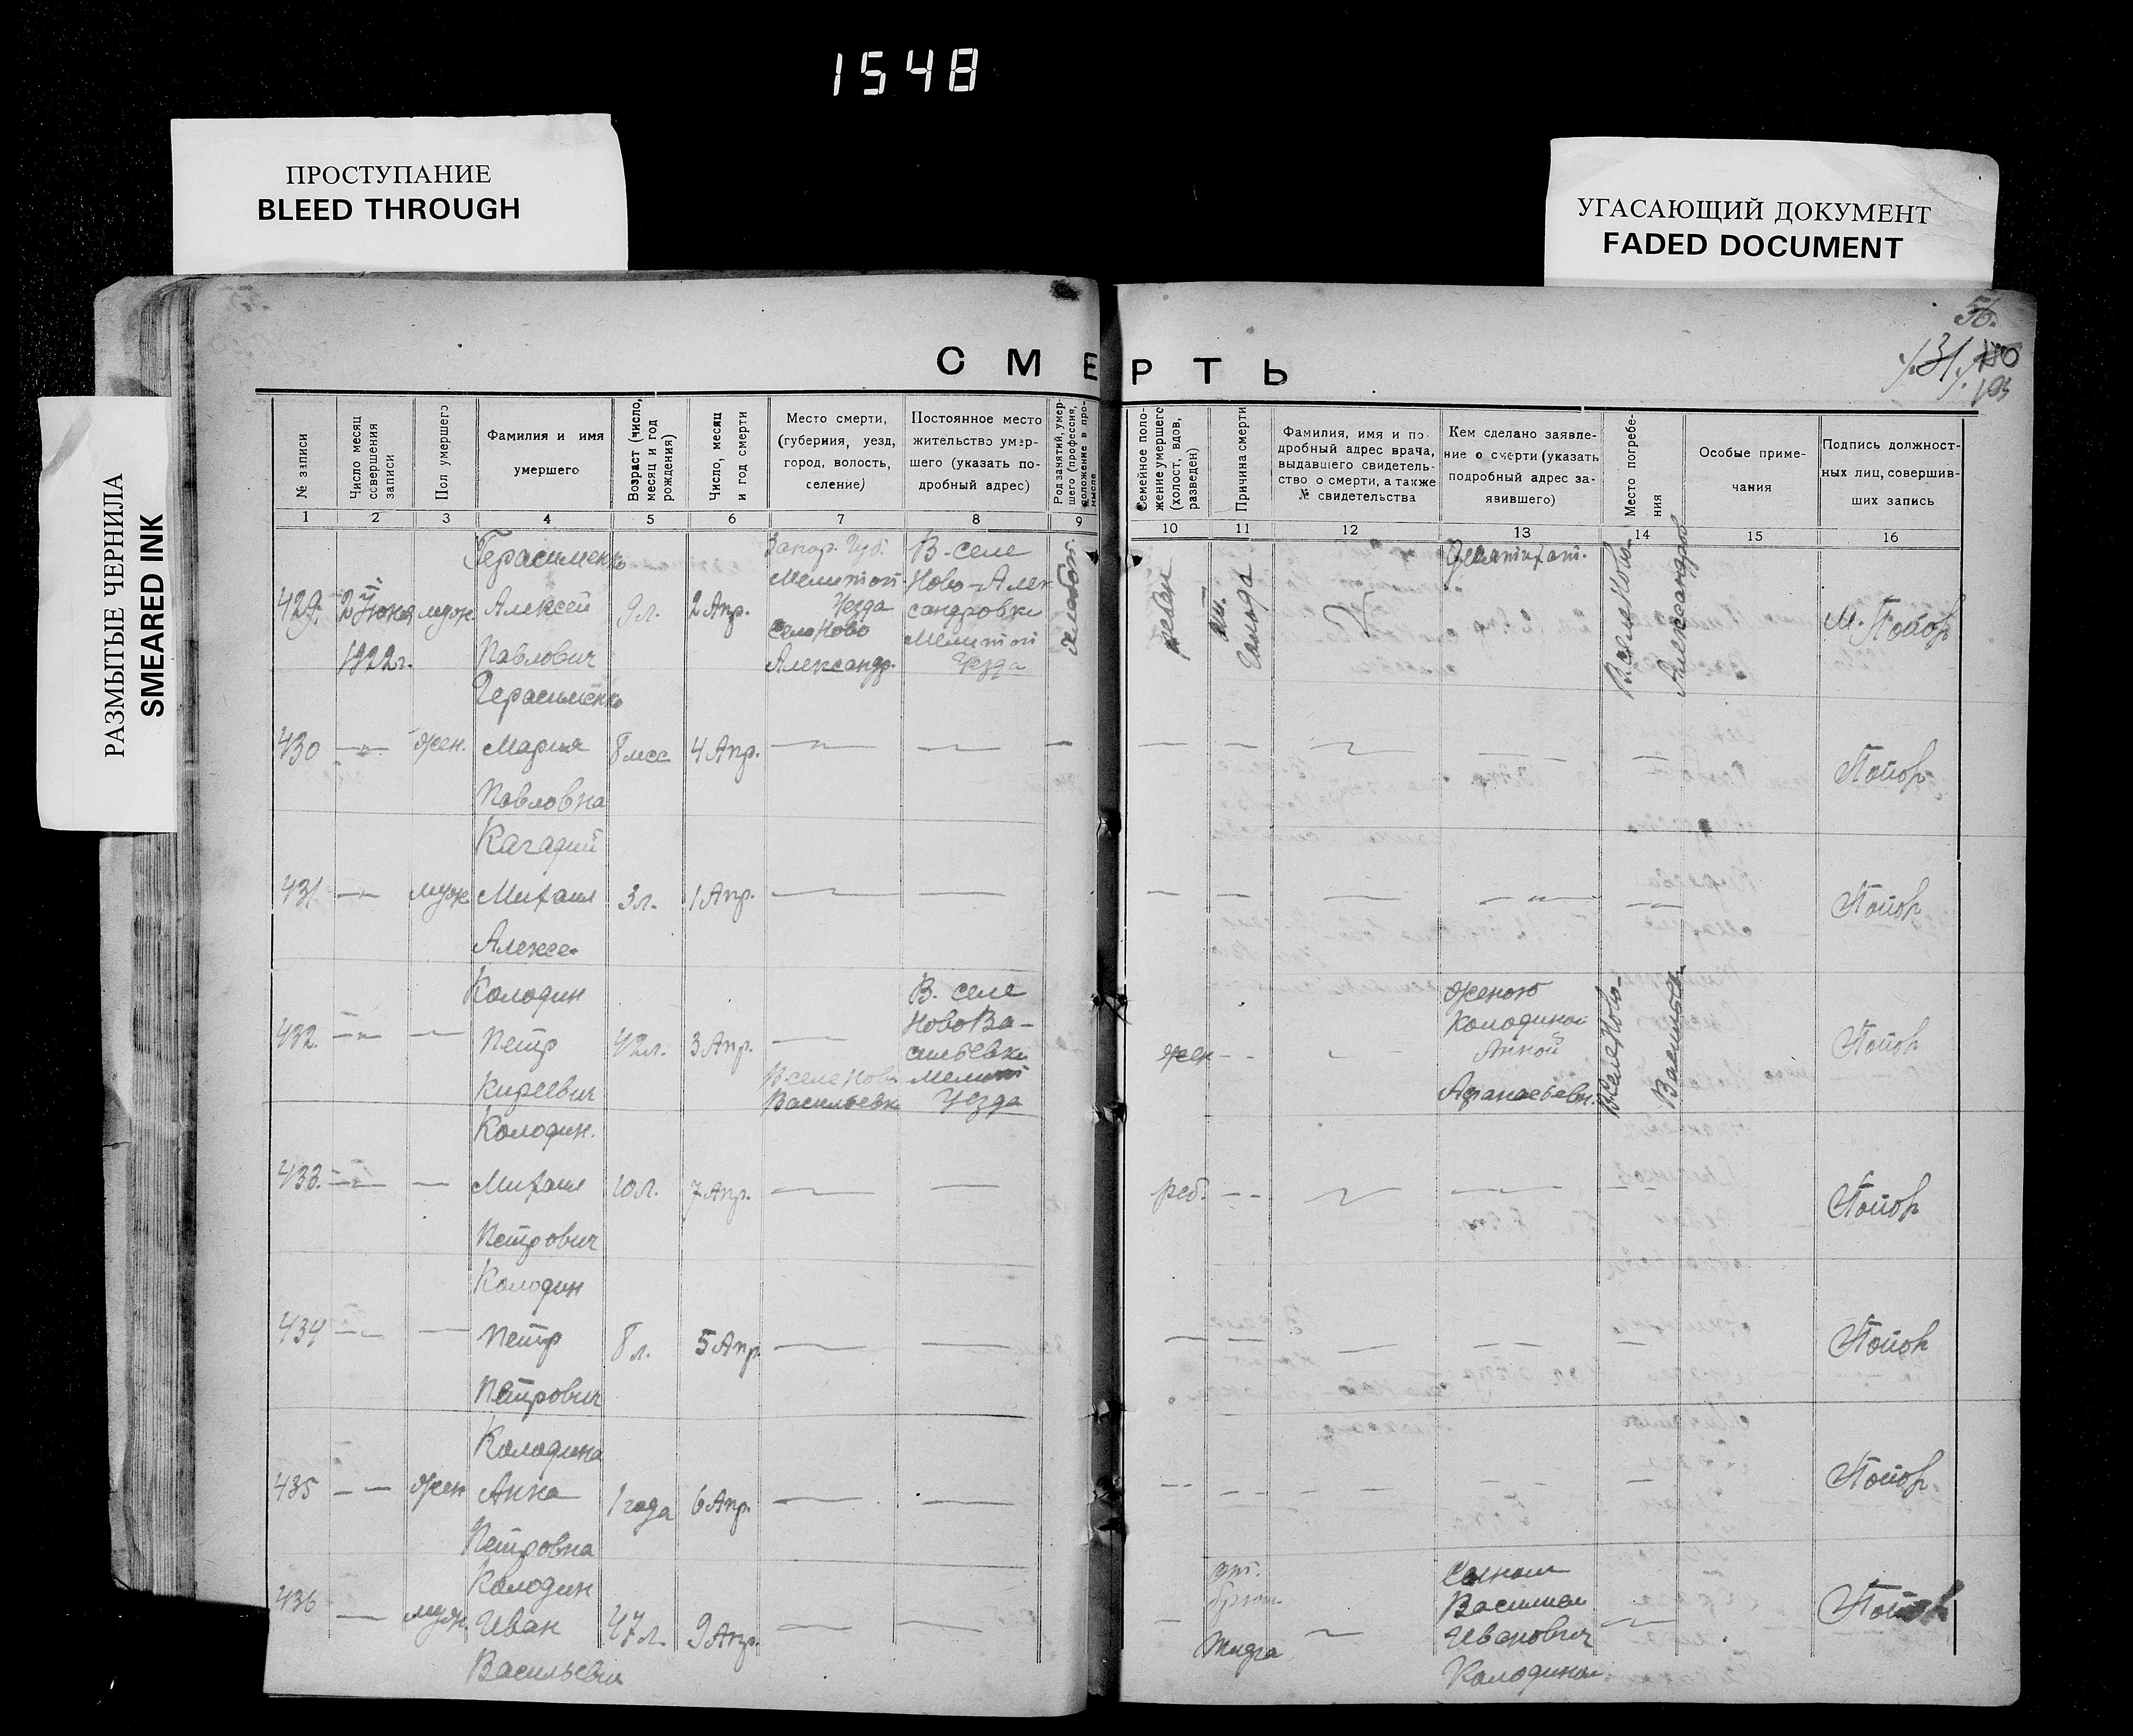 1548
ПРОСТУПАНИЕ
BLEED THROUGH
УГАСАЮЩИЙ ДОКУМЕНТ
FADED DOCUMENT
РАЗМЫТЫЕ ЧЕРНИЛА
SMEARED INK
56.
31
180
СМЕРТЬ
№ записи
Число месяц совершения записи
Пол умершего
Фамилия и имя
умершего
Возраст (число, месяц и год рождения)
Число, месяц и год смерти
Место смерти,
(губерния, уезд,
город, волость,
селение)
Постоянное место
жительство умер-
шего (указать по-
дробный адрес)
Род занятий, умер-
шего (профессия,
положение в про-
мысле
Семейное поло-
жение умершего
(холост, вдов,
разведен)
Причина смерти
Фамилия, имя и по-
дробный адрес врача,
выдавшего свидетель-
ство о смерти, а также
№ свидетельства
Кем сделано заявле-
ние о смерти (указать
подробный адрес за-
явившего)
Место погребе-
ния
Особые приме-
чания
Подпись должност-
ных лиц, совершив-
ших запись
1 2 3 4 5 6 7 8 9 10 11 12 13 14 15 16
429. 2 Июня 1922г. муж
Герасименко
Алексей
Павлович
9л. 2 Апр.
Запор. Губ.
Мелитоп
Уезда
Село Ново
Александр.
В. селе
Ново-Алек
сандровки
Мелитоп
Уезда
хлебоп.
Голода
В селе Ново-
Александров
М. Попов
430 — " — жен.
Герасименко
Мария
Павловна
8 мес 4 Апр.
Попов
431 — " — муж
Кагадий
Михаил
Алексе.
3л. 1 Апр.
Попов
432. — " — —
Колодин
Петр
Киреевич
42л. 3 Апр.
В селе Ново
Васильевк
В. селе
Ново Ва-
сильевки
Мелитоп
Уезда
жен
Женою
Колодиной
Анной
Афанасьевн.
В селе Ново-
Васильев
Попов
433. — " — —
Колодин.
Михаил
Петрович
10л. 7 Апр.
реб.
Попов
434 — — —
Колодин
Петр
Петрович
8 л. 5 Апр.
Попов
435 — — жен
Колодина
Анна
Петровна
1 года 6 Апр.
Попов
436 — муж.
Колодин
Иван
Васильевич
47л. 9 Апр.
Тифа
Сыном
Василием
Иванович
Колодиным
Попов